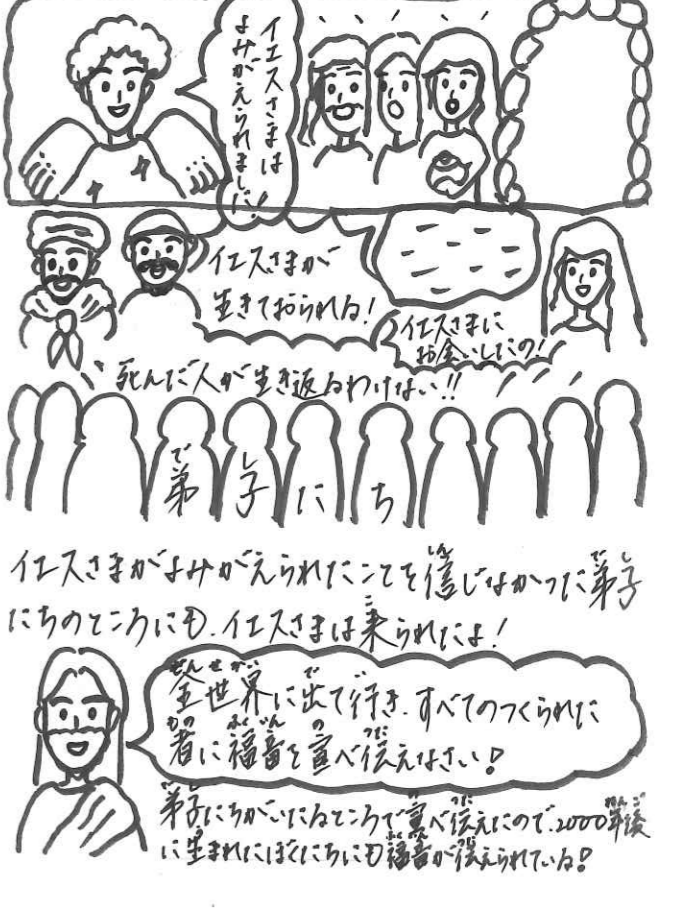 イエスさまは
よみがえられました!
イエスさまが
生きておられる!
イエスさまに
お会いしたの!
死んだ人が生き返るわけない!!
でし
弟子たち
イエスさまがよみがえられたことを信じなかった弟子
たちのところにも、イエスさまは来られたよ!
全世界に出て行き、すべてのつくられた
者に福音を宣べ伝えなさい!
弟子たちがいたるところで宣べ伝えたので、2000年後
に生まれたぼくたちにも福音が伝えられている!